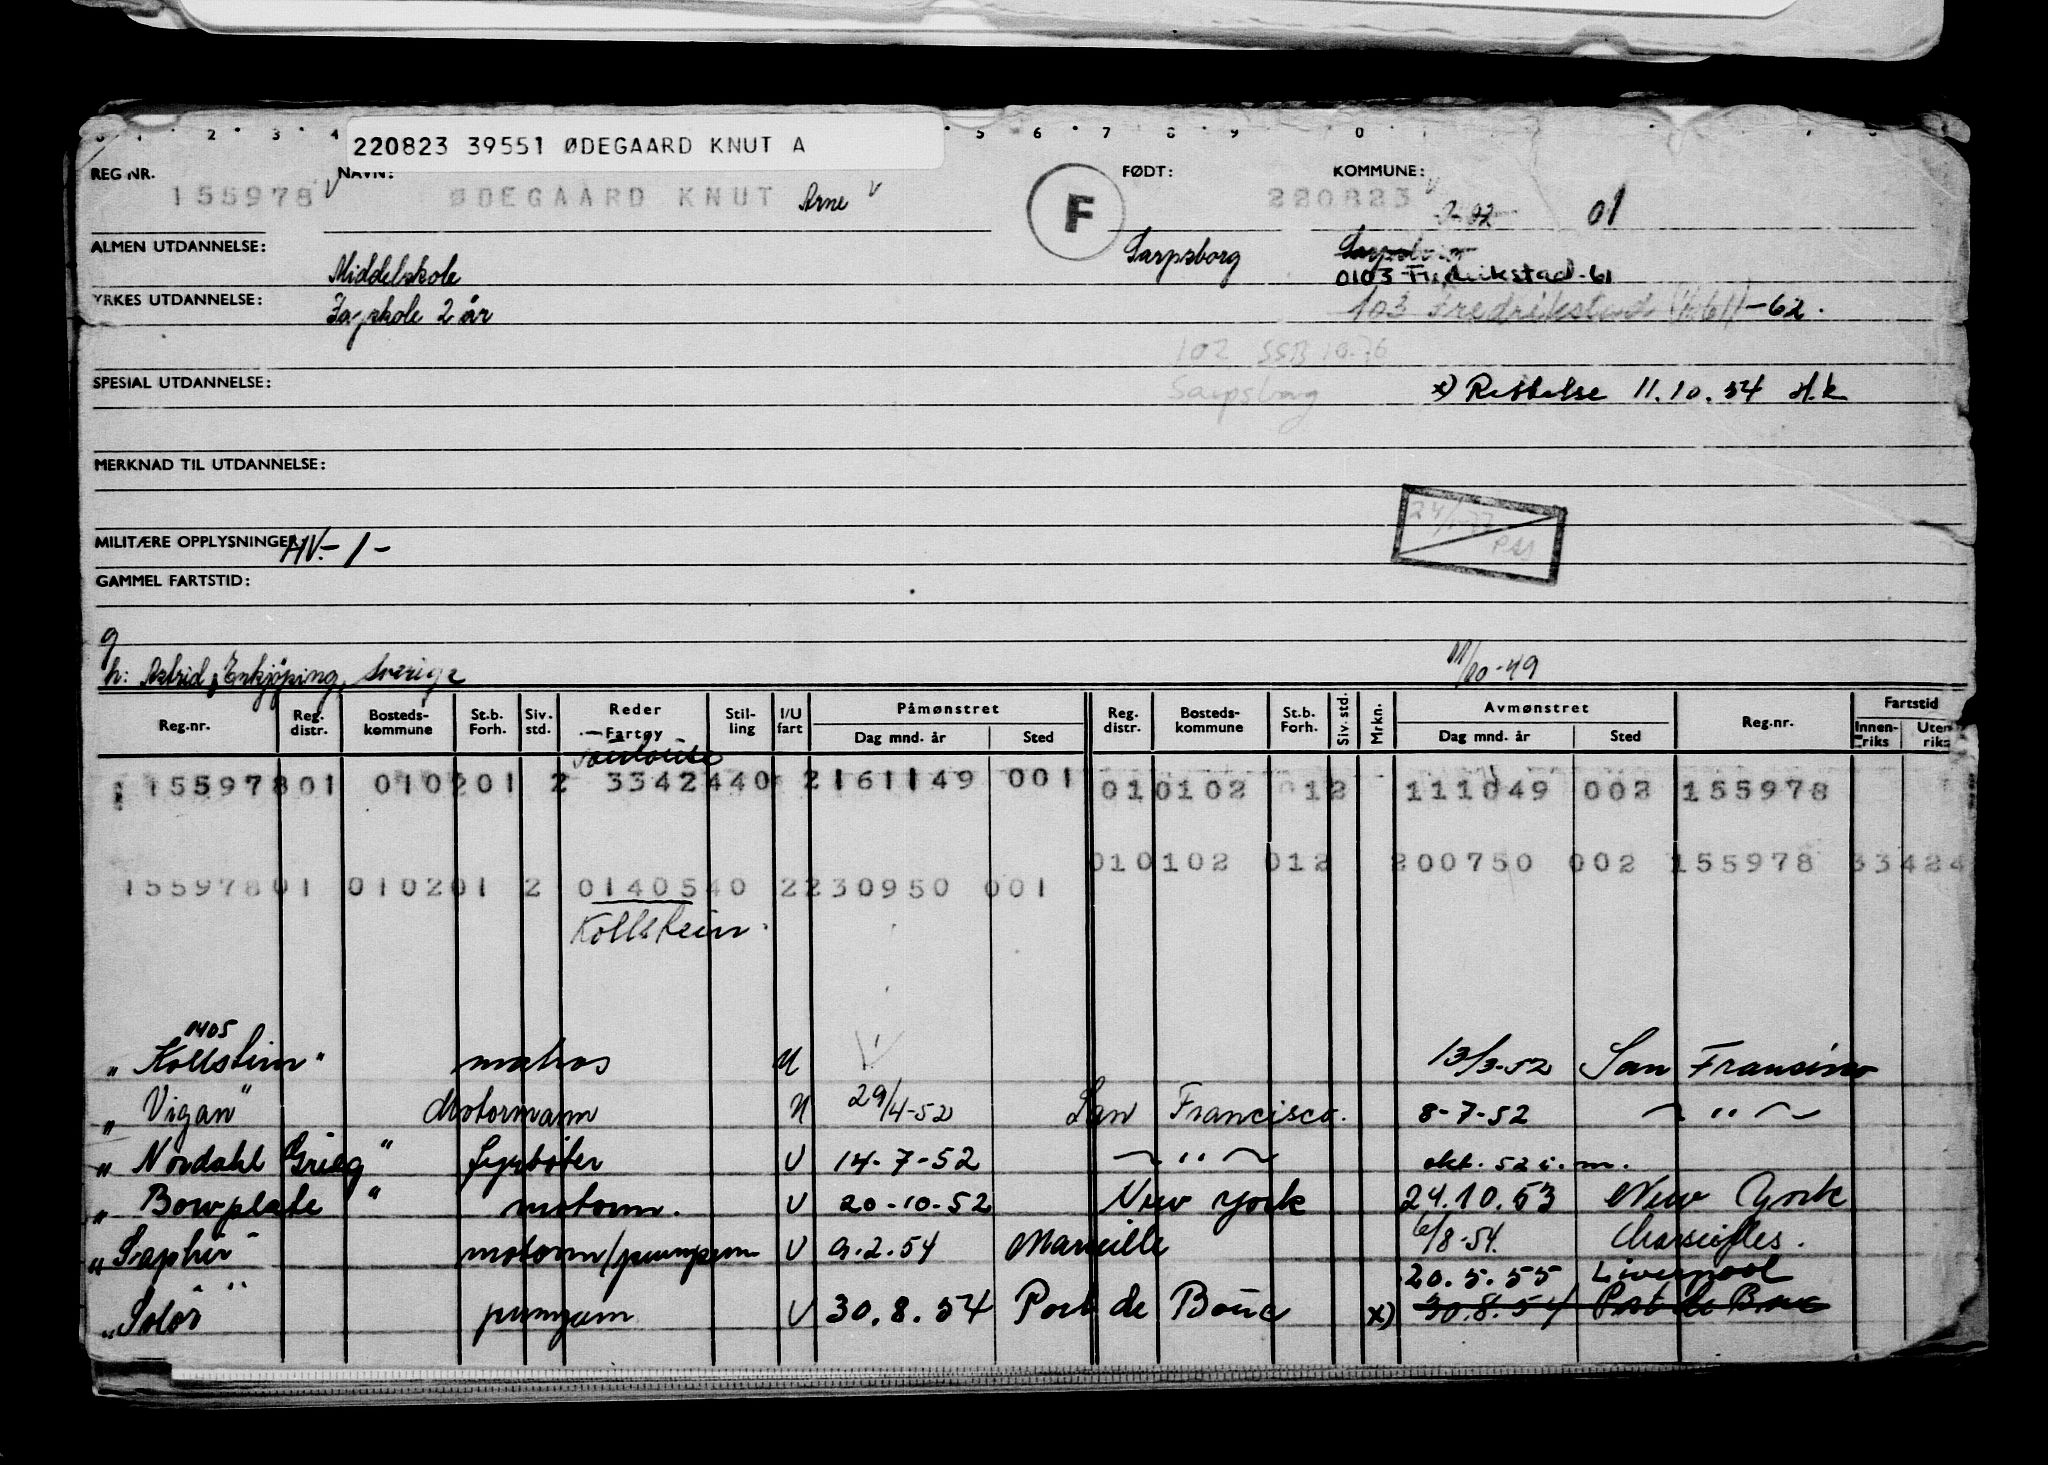 220823 39551 ØDEGAARD KNUT A
REG NR. NAVN: FØDT: KOMMUNE:
155978 ØDEGAARD KNUT Arne F 220823 01
ALMEN UTDANNELSE: Middelskole Sarpsborg Sarpsborg
0103 Fredrikstad-61
YRKES UTDANNELSE: Fagskole 2 år 103 Fredrikstad (1/6 61) -62.
102 SSB 10.76
SPESIAL UTDANNELSE: Sarpsborg x) Rettelse 11.10.54 H.k
MERKNAD TIL UTDANNELSE:
MILITÆRE OPPLYSNINGER: HV.-1-
GAMMEL FARTSTID:
g
h: Astrid, Enkjöping, Sverige 11/10-49
Reg.nr. Reg. distr. Bosteds-kommune St.b. Forh. Siv. std. Reder Fartøy Stil-ling I/U fart Påmønstret Dag mnd. år Sted Reg. distr. Bosteds-kommune St.b. Forh. Siv. std. Mrkn. Avmønstret Dag mnd. år Sted Reg.nr. Fartstid Innen-riks Uten riks
Toulouse
155978 01 0102 01 2 33424 40 2 161149 001 01 0102 01 2 111049 002 155978
01 0102 01 2 200750 002 155978 33424
155978 01 0102 01 2 01405 40 2 230950 001
Kollstein.
1405
"Kollstein" matros U 13/3-52 San Fransisco
"Vigan" Motormann U 29/4-52 San Francisco. 8-7-52 ~ " ~
"Nordahl Grieg" fyrbøter U 14-7-52 ~ " ~ okt. 52 i.m.
"Bowplate" motorm. U 20-10-52 New York 24.10.53 New York
"Saphir" motorm/pumpem U 9.2.54 Marseille 6/8-54. Marseilles.
20.5.55 Liverpool
"Solør" pumpem U 30.8.54 Port de Bouc x) 30.8.54 Port de Bouc